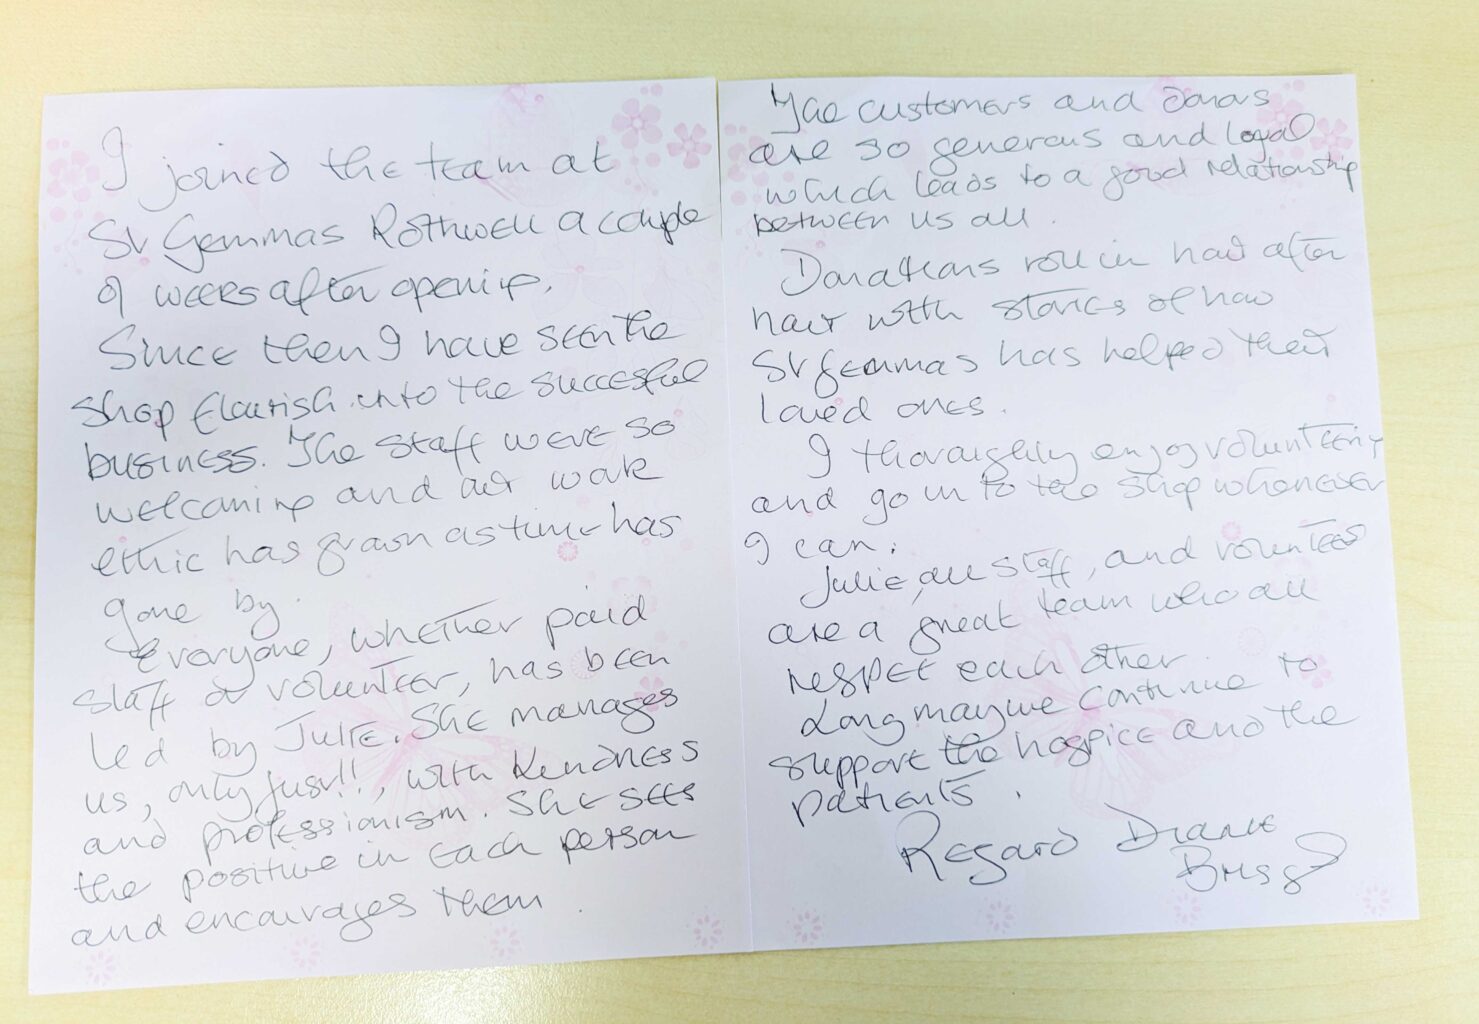 I joined the team at
St Gemmas Rothwell a couple
of weeks after opening.
Since then I have seen the
shop flourish into the succesful
business. The staff were so
welcoming and our work
ethic has grown as time has
gone by.
Everyone, whether paid
staff or volunteer, has been
led by Julie. She manages
us, only just!!, with kindness
and professionism. She sees
the positive in each person
and encourages them.
The customers and donors
are so generous and loyal
which leads to a good relationship
between us all.
Donations roll in hour after
hour with stories of how
St Gemmas has helped their
loved ones.
I thoroughly enjoy volunteering
and go in to the shop whenever
I can.
Julie, all staff, and volunteers
are a great team who all
respect each other
Long may we continue to
support the hospice and the
patients.
Regard Diane